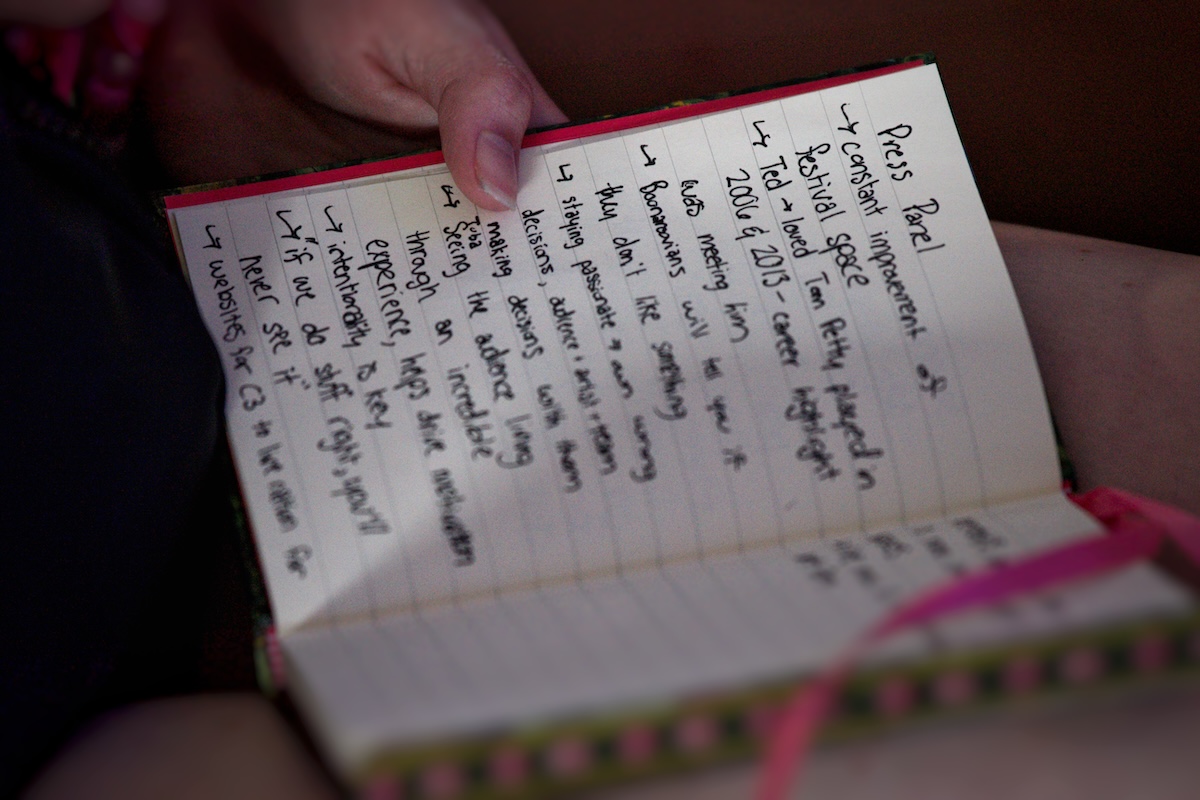 Press Panel
↳ constant improvement of
festival space
↳ Ted → loved Tom Petty played in
2006 & 2013 - career highlight
was meeting him
↳ Boonarovians will tell you if
they don't like something
↳ staying passionate → own wrong
decisions, audience + artist + team
making decisions with them
↳ Seeing the audience living
through an incredible
experience, helps drive motivation
↳ intentionality is key
↳ "if we do stuff right, you'll
never see it"
↳ websites for C3 to live nation for